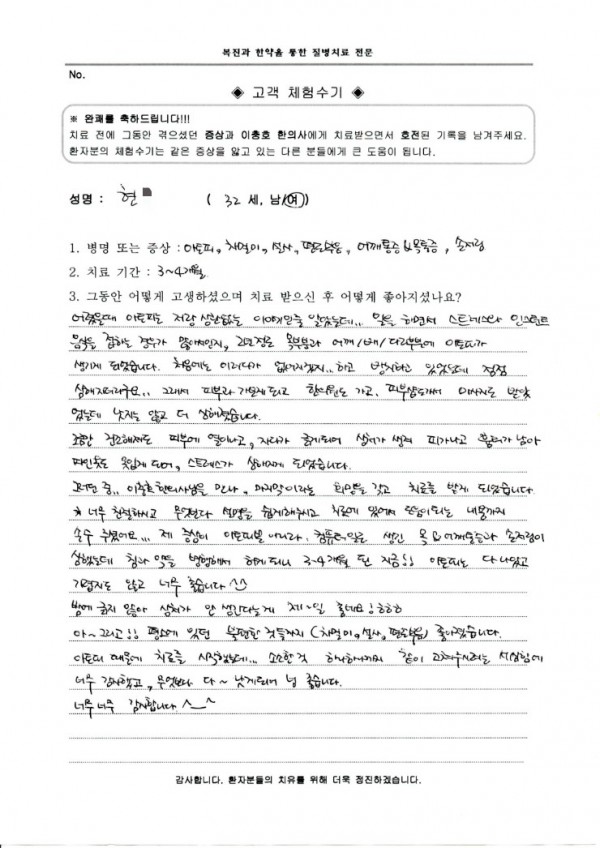 복진과 한약을 통한 질병치료 전문
No.
◈ 고객 체험수기 ◈
※ 완쾌를 축하드립니다!!!
치료 전에 그동안 겪으셨던 증상과 이충호 한의사에게 치료받으면서 호전된 기록을 남겨주세요.
환자분의 체험수기는 같은 증상을 앓고 있는 다른 분들에게 큰 도움이 됩니다.
성명 : 현 ( 32 세, 남/여)
1. 병명 또는 증상 : 아토피, 차멀미, 설사, 편도부음, 어깨통증&목통증, 손저림
2. 치료 기간 : 3~4개월
3. 그동안 어떻게 고생하셨으며 치료 받으신 후 어떻게 좋아지셨나요?
어렸을때 아토피는 저랑 상관없는 이야기인줄 알았는데.. 일을 하면서 스트레스와 인스턴트
음식을 접하는 경우가 많아서인지, 2년정도 목부분과 어깨/배/다리부분에 아토피가
생기게 되었습니다. 처음에는 이러다가 없어지겠지.. 하고 방치하고 있었는데 점점
심해지더라구요.. 그래서 피부과 가보게되고 한의원도 가고, 피부샵도가서 마사지도 받았
었는데 낫지는 않고 더 심해졌습니다.
조금만 건조해져도 피부에 열이나고, 자다가 긁게되어 상처가 생겨 피가나고 흉터가 남아
파인옷도 못입게 되어, 스트레스가 심해지게 되었습니다.
그러던 중.. 이충호한의사님을 만나, 마지막이라는 희망을 갖고 치료를 받게 되었습니다.
너무 친절하시고 무엇보다 설명을 쉽게해주시고 치료에 있어서 도움이되는 내용까지
해주셨어요... 제 증상이 아토피뿐 아니라, 컴퓨터일로 생긴 목&어깨통증과 손저림이
심했는데 침과 약을 병행해서 하게되니 3~4개월 된 지금!! 아토피는 다 나았고
가렵지도 않고 너무 좋습니다^^
밤에 긁지 않아 상처가 안 생긴다는게 제~일 좋네요! 하하하
아~ 그리고!! 평소에 있던 불편한 것들까지 (차멀미, 설사, 편도부음) 좋아졌습니다.
아토피 때문에 치료를 시작했는데... 소소한것 하나하나까지 같이 고쳐주시려는 세심함에
너무 감사했고, 무엇보다 다~ 낫게되어 넘 좋습니다.
너무너무 감사합니다 ^_^
감사합니다. 환자분들의 치유를 위해 더욱 정진하겠습니다.